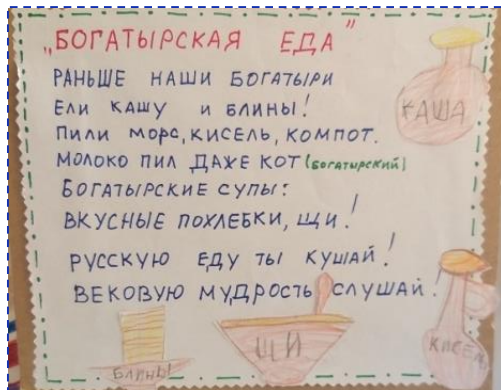 „БОГАТЫРСКАЯ ЕДА"
РАНЬШЕ НАШИ БОГАТЫРИ
ЕЛИ КАШУ И БЛИНЫ!
ПИЛИ МОРС, КИСЕЛЬ, КОМПОТ.
МОЛОКО ПИЛ ДАЖЕ КОТ (БОГАТЫРСКИЙ)
БОГАТЫРСКИЕ СУПЫ:
ВКУСНЫЕ ПОХЛЕБКИ, ЩИ!
РУССКУЮ ЕДУ ТЫ КУШАЙ!
ВЕКОВУЮ МУДРОСТЬ СЛУШАЙ!
КАША
БЛИНЫ
ЩИ
КИСЕЛЬ